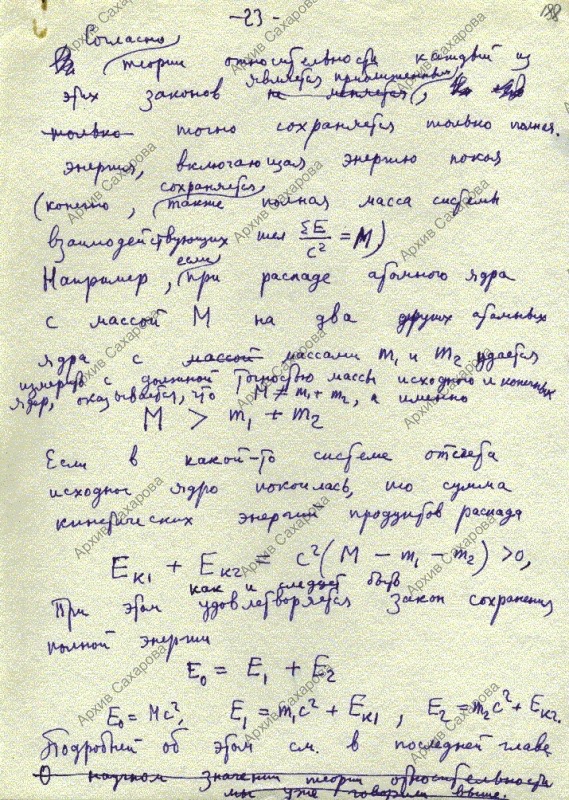 -23-
188
Согласно
теории относительности каждый из
является приближенным,
этих законов не меняется,
только точно сохраняется только полная
энергия, включающая энергию покоя
сохраняется
(конечно, также полная масса системы
взаимодействующих тел ΣE/c² = M)
если
Например, при распаде атомного ядра
с массой M на два других атомных
ядра с массой массами m₁ и m₂ удается
измерить с должной точностью массы исходного и конечных
ядер, оказывается, что M ≠ m₁ + m₂, а именно
M > m₁ + m₂
Если в какой-то системе отсчета
исходное ядро покоилась, то сумма
кинетических энергий продуктов распада
Eк1 + Eк2 = c² (M - m₁ - m₂) > 0,
как и следует быть
При этом удовлетворяется закон сохранения
полной энергии
E₀ = E₁ + E₂
E₀ = Mc², E₁ = m₁c² + Eк1, E₂ = m₂c² + Eк2.
Подробней об этом см. в последней главе
О научном значении теории относительности
мы уже говорили выше.
Архив Сахарова